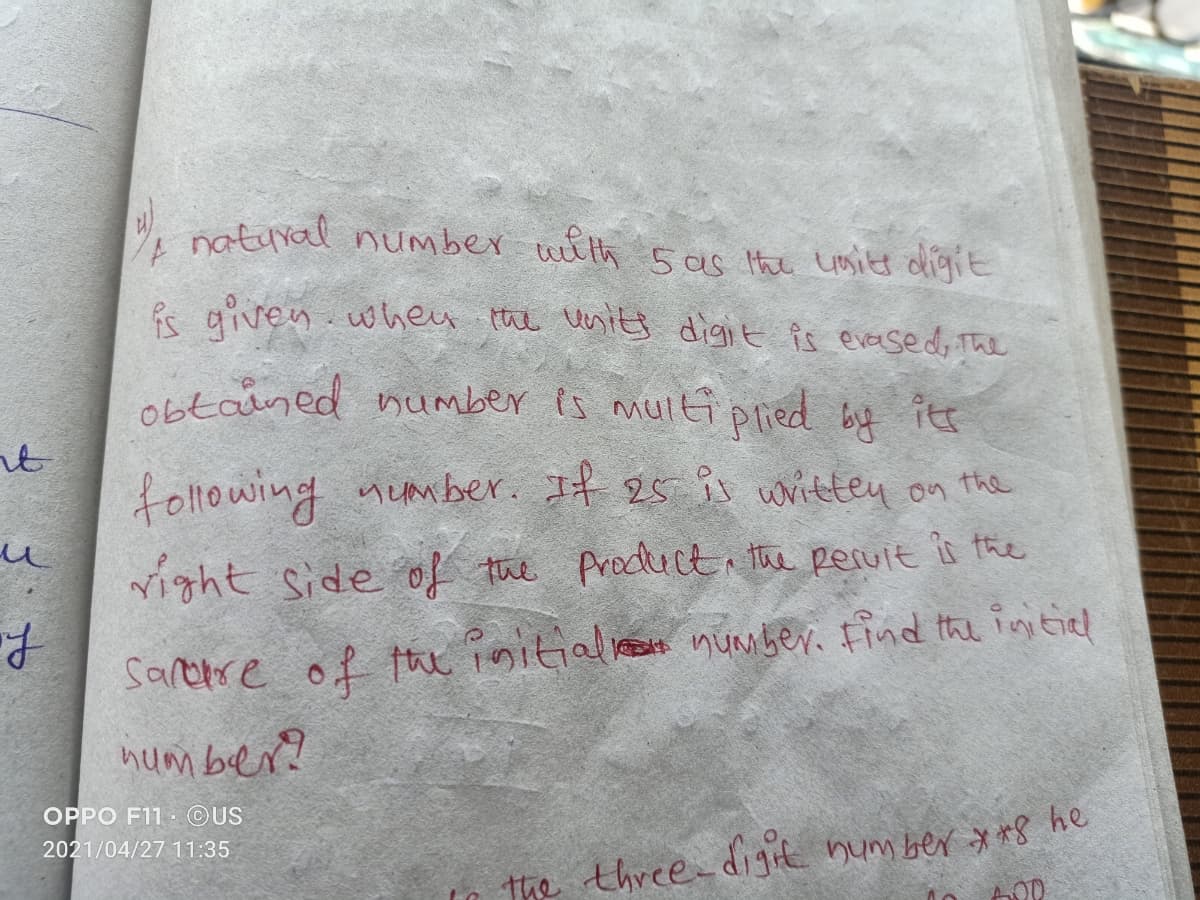 4)
A natural number with 5 as the units digit
is given. when the units digit is erased, The
obtained number is multiplied by its
following number. If 25 is written on the
right side of the product, the Result is the
sarure of the initial number. Find the initial
number?
the three-digit number **8 he
600
nt
u
of
OPPO F11 · ©US
2021/04/27 11:35